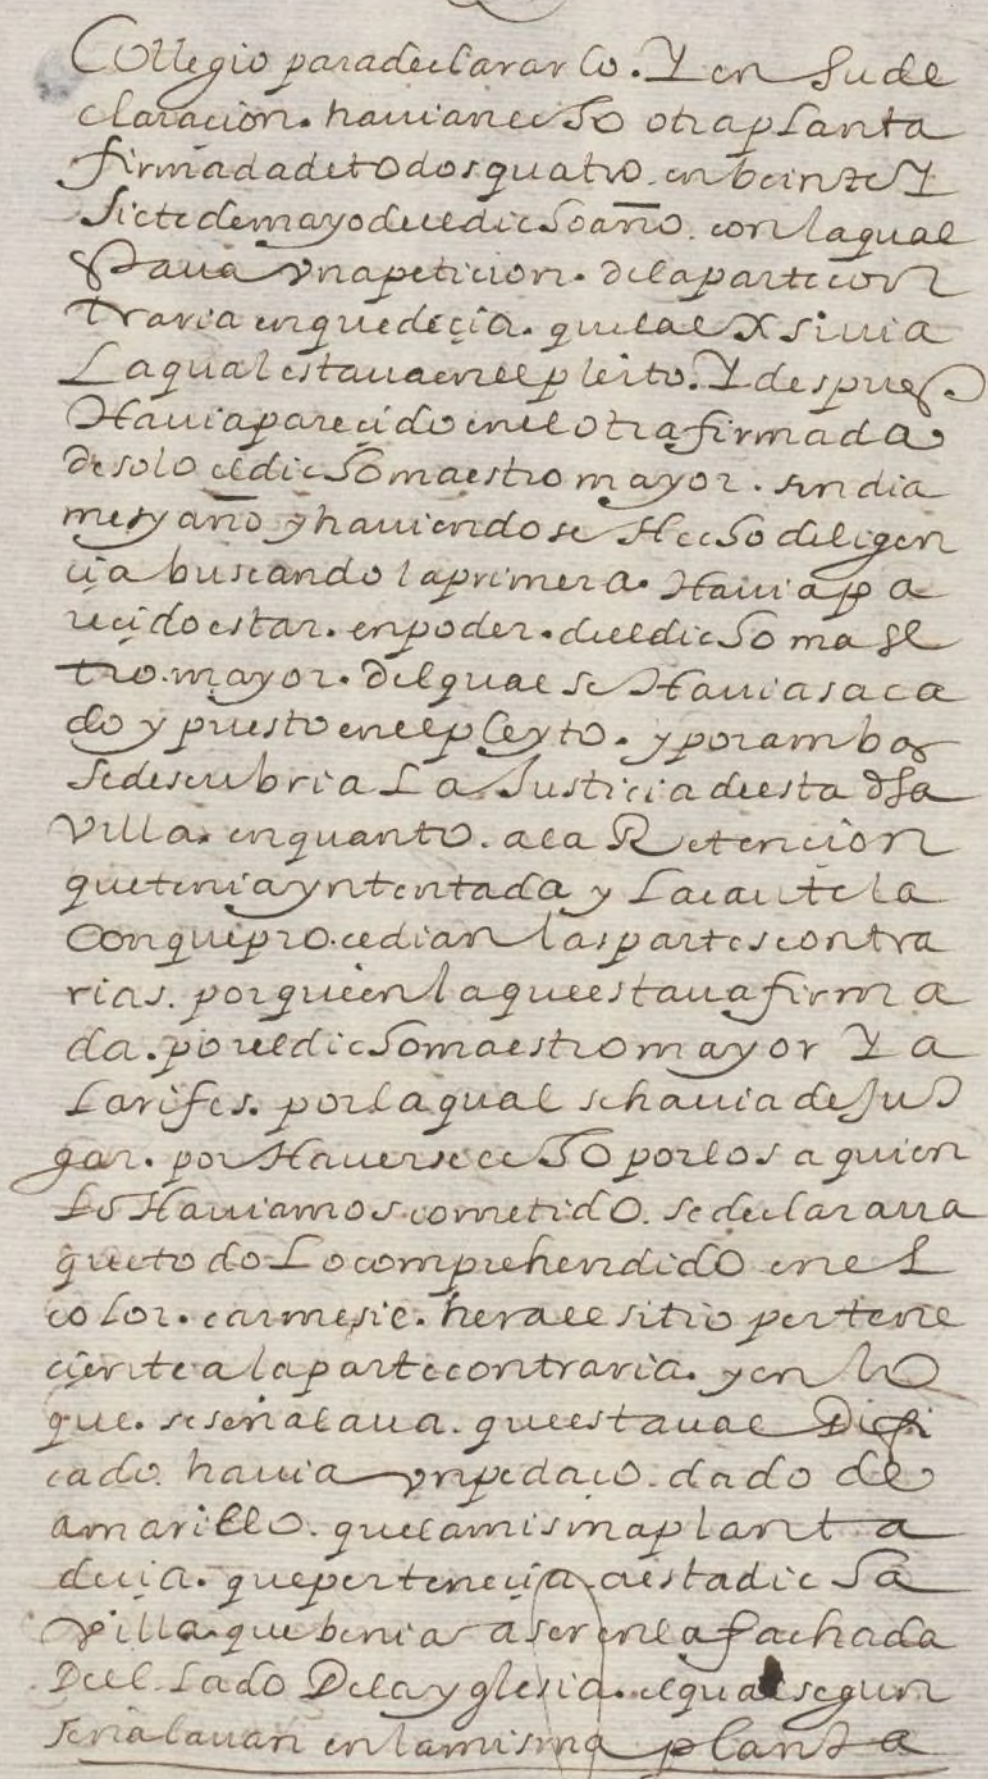 Collegio para declararlo. Y en su de
claracion. havian echo otra planta
firmada de todos quatro. en beinte Y
siete de mayo de el dicho año. con la qual
estava vna peticion. de la parte con
traria en que decia. que la exsivia
La qual estava en el pleito. Y despues
Havia parecido en el otra firmada
de solo el dicho maestro mayor. sin dia
mes y año y haviendose Hecho deligen
cia buscando la primera. Havia pa
recido estar. en poder. de el dicho maes
tro. mayor. del qual se Havia saca
do y puesto en el pleyto. y por ambas
se descubria La Justicia de esta dha
Villa. en quanto. a la Retencion
que tenia yntentada y La cautela
Con que pro.cedian las partes contra
rias. porque en la que estava firma
da. por el dicho maestro mayor Y a
Larifes. por la qual se havia de Jus
gar. por Haverse echo por los a quien
Lo Haviamos cometido. se declarava
que todo Lo comprehendido en el
color. carmesie. hera el sitio pertene
ciente a la parte contraria. y en lo
que. se señalava. que estava e Difi
cado. havia vn pedaco. dado de
amarillo. que la misma planta
decia. que pertenecia a esta dicha
Villa que benia a ser en la fachada
Del Lado De la yglesia. el qual segun
señalavan en la misma planta